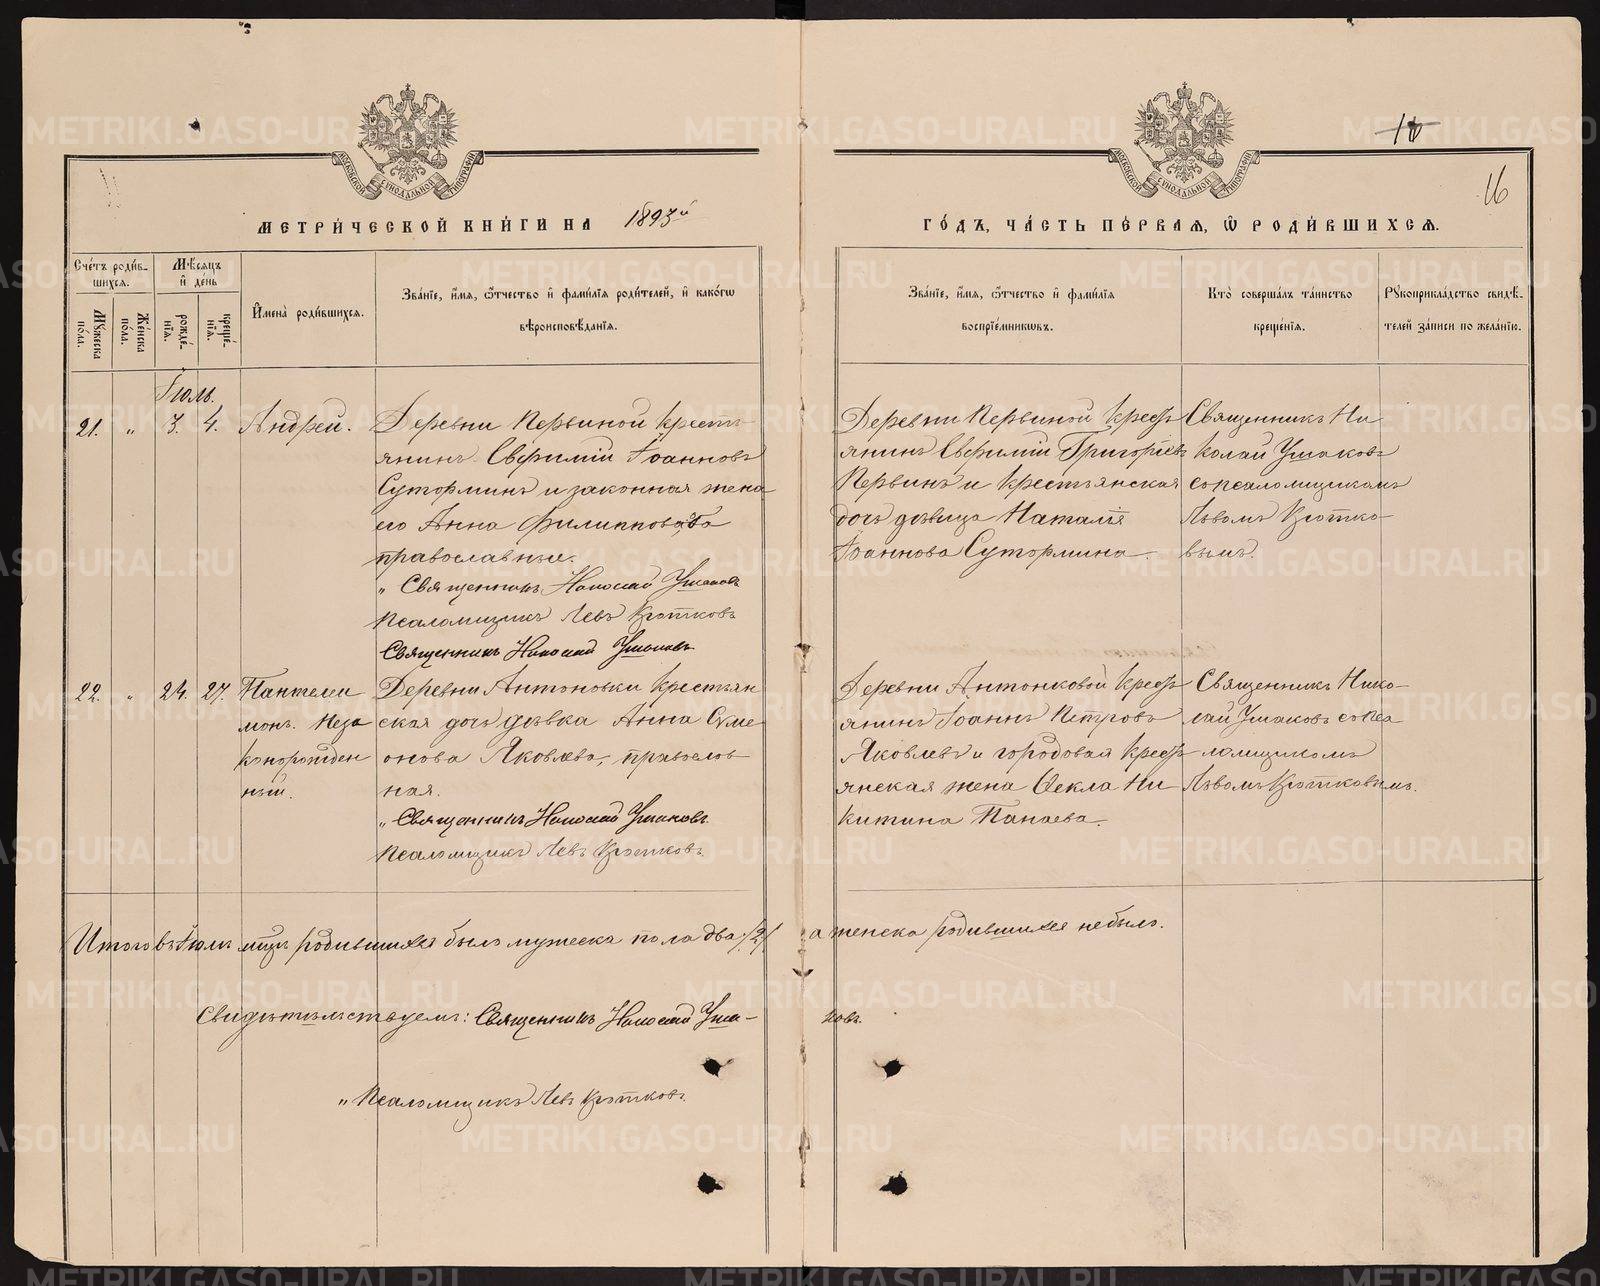 МОСКОВСКОЙ СѴНОДАЛЬНОЙ ТИПОГРАФІИ
МОСКОВСКОЙ СѴНОДАЛЬНОЙ ТИПОГРАФІИ
16
МЕТРИ́ЧЕСКОЙ КНИ́ГИ НА 1893й
ГО́ДЪ, ЧА́СТЬ ПЕ́РВАЯ, Ѿ РОДИ́ВШИХСЯ.
Сче́тъ роди́в-
шихся.
Мѣ́сяцъ
и҆ де́нь
Мꙋ́жеска по́ла.
Же́нска по́ла.
рожде́-нїя.
креще́-нїя.
И҆мена̀ роди́вшихся.
Зва́нїе, и҆́мя, ѻ҆́тчество и҆ фами́лїя роди́телей, и҆ како́гѡ
вѣроисповѣ́данїя.
Зва́нїе, и҆́мя, ѻ҆́тчество и҆ фами́лїя
воспрїе́мникѡвъ.
Кто̀ соверша́лъ та́инство
креще́нїя.
Рꙋкоприкла́дство свидѣ́-
телей за́писи по жела́нїю.
Іюль.
21. " 3. 4. Андрей.
Деревни Первиной крестъ
янинъ Евфимій Іоанновъ
Сутормин и законная жена
его Анна Филиппова, оба
православные.
" Священникъ Николай Ушаковъ
Псаломщикъ Левъ Кротковъ
Священникъ Николай Ушаковъ
Деревни Первиной крест
янинъ Евфимій Григорьевъ
Первинъ и крестьянская
дочь дѣвица Наталія
Іоаннова Сутормина.
Священникъ Ни
колай Ушаковъ
съ псаломщикомъ
Львомъ Кротко-
вымъ.
22. " 24. 27. Пантелеи
монъ. Неза
конорожден
ный.
Деревни Антоновки крестьян
ская дочь дѣвка Анна Симе
онова Яковлева, православ
ная.
" Священникъ Николай Ушаковъ.
Псаломщикъ Левъ Кротковъ.
Деревни Антонковой крест
янинъ Іоаннъ Петровъ
Яковлевъ и городовая крест
янская жена Ѳекла Ни
китина Панаева.
Священникъ Нико-
лай Ушаковъ съ пса
ломщикомъ
Львомъ Кротковымъ.
Итого въ Іюлѣ мцѣ родившихся было мужеска пола два /2/ а женска родившихся не было.
Свидѣтельствуемъ: Священникъ Николай Уша-
ковъ.
" Псаломщикъ Левъ Кротковъ.
METRIKI.GASO-URAL.RU